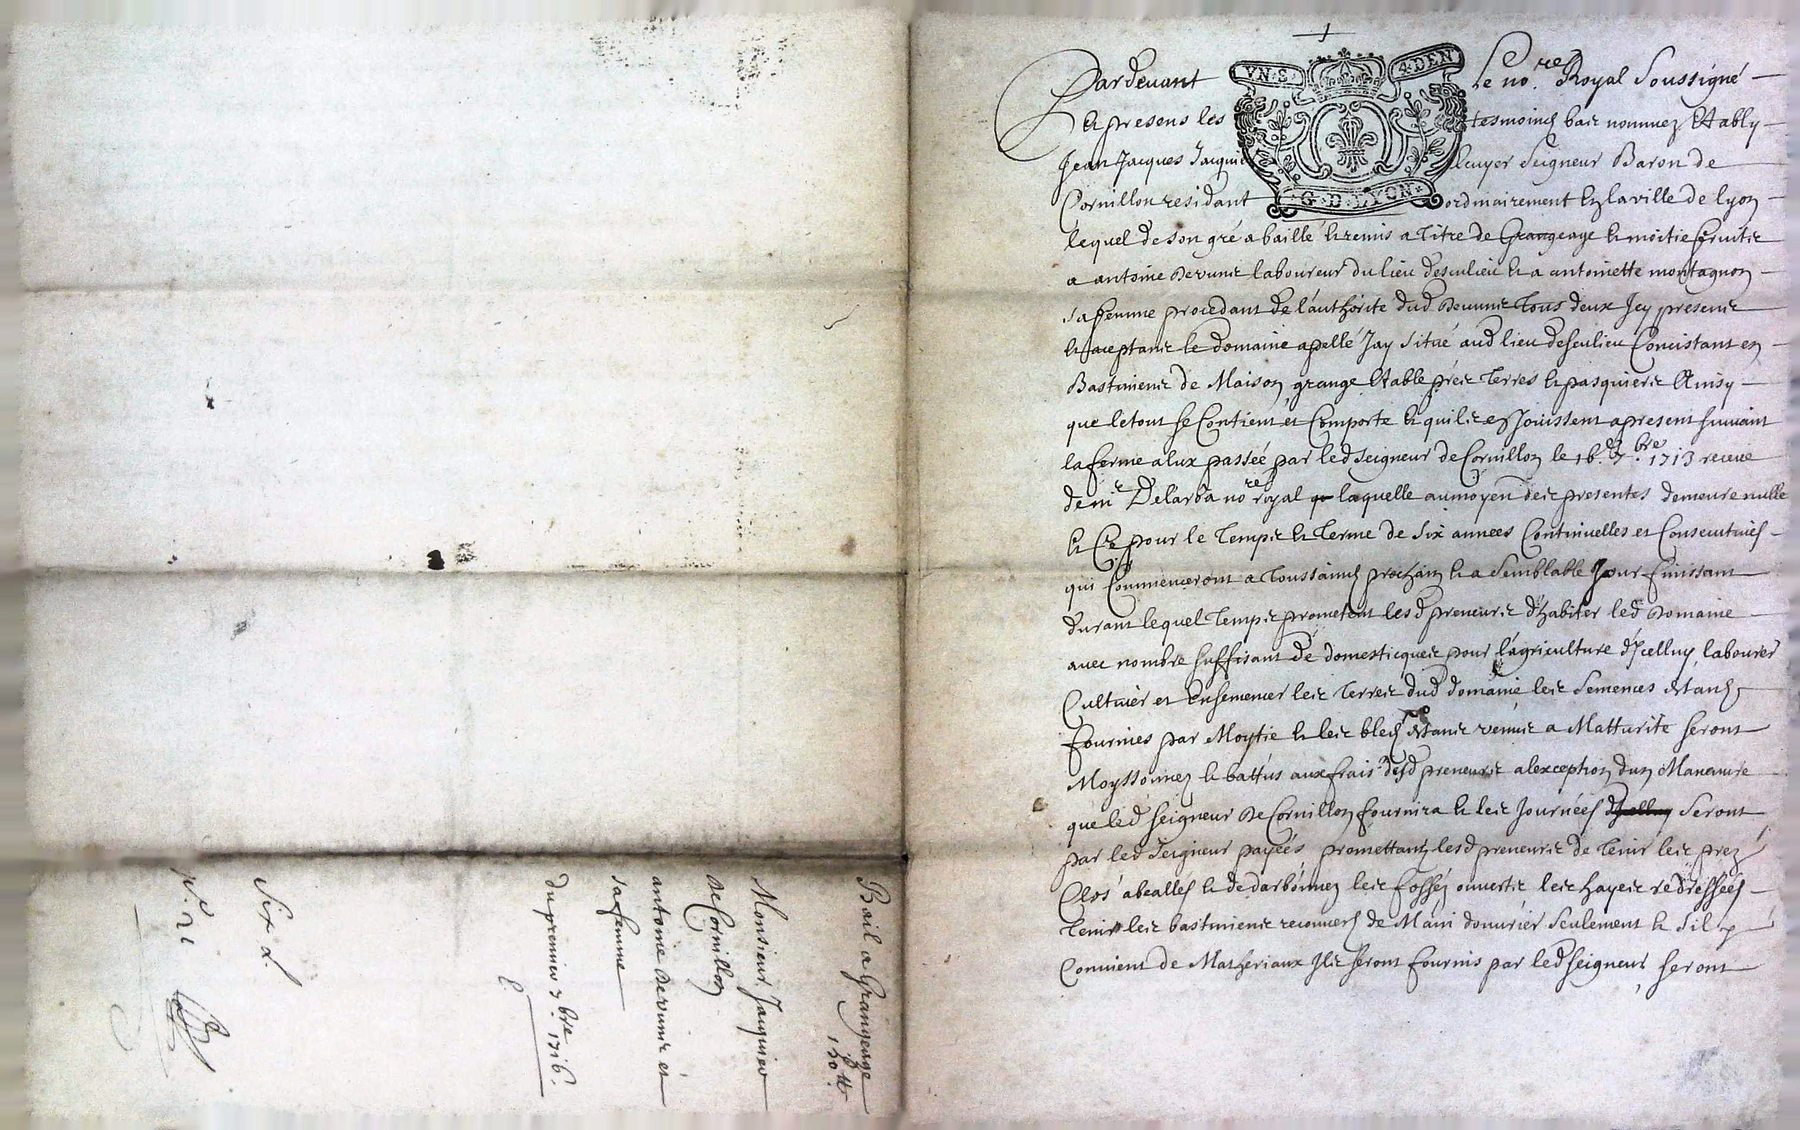 Bail a Grangeage
130 tt
Monsieur Jacquier
de Cornillon
antoine devunt et
sa femme
du premier 9.bre 1716.
Six d.
Pardevant VN·S· 4·DEN le no.re Royal Soussigné
et presens les tesmoins bas nommez Estably
Jean Jacques Jacquier Escuyer Seigneur Baron de
Cornillon residant G·D·LYON· ordinairement en la ville de lyon
lequel de son gré a baillé et remis a titre de Grangeage et moitie fruits
a antoine laboureur du lieu desculieu et a antoinette montagnon
sa femme procedant de l'authorite dud tous deux Icy presents
et aceptants le domaine apellé Jay Situé aud lieu desculieu Concistant en
Bastiments de Maison grange Estable prés terres et pasquiers Ainsy
que le tout se Contient et Comporte et quils en Jouissent a present suivant
la ferme a eux passée par led Seigneur de Cornillon le 16.e 1713 receue
de me Delarba no.re royal laquelle aumoyen des presentes demeure nulle
et Ce pour le Temps et Terme de Six années Continuelles et Consecutives
qui Commenceront a Toussaincts prochain et a Semblable Jour finissant
durant lequel Temps promettent lesd preneurs d'habiter led Domaine
avec nombre suffisant de domesticques pour l'agriculture d'Icelluy, labourer
Cultiver et Ensemencer les Terres dud domaine les Semences Estants
fournies par Moytie et les bleds Estants venus a Matturité seront
Moyssonnez et battus aux frais desd preneurs a lexception dun Maneuvre
que led seigneur de Cornillon fournira et les Journées Seront
par led Seigneur payées, promettants lesd preneurs de tenir les prez
Clos abeallés et dedarbonnez les fossez ouverts les hayes redressées
Tenir les bastiments recouverts de Main douvrier Seulement et Sil y
Convient de Matheriaux Ils seront fournis par led seigneur, seront